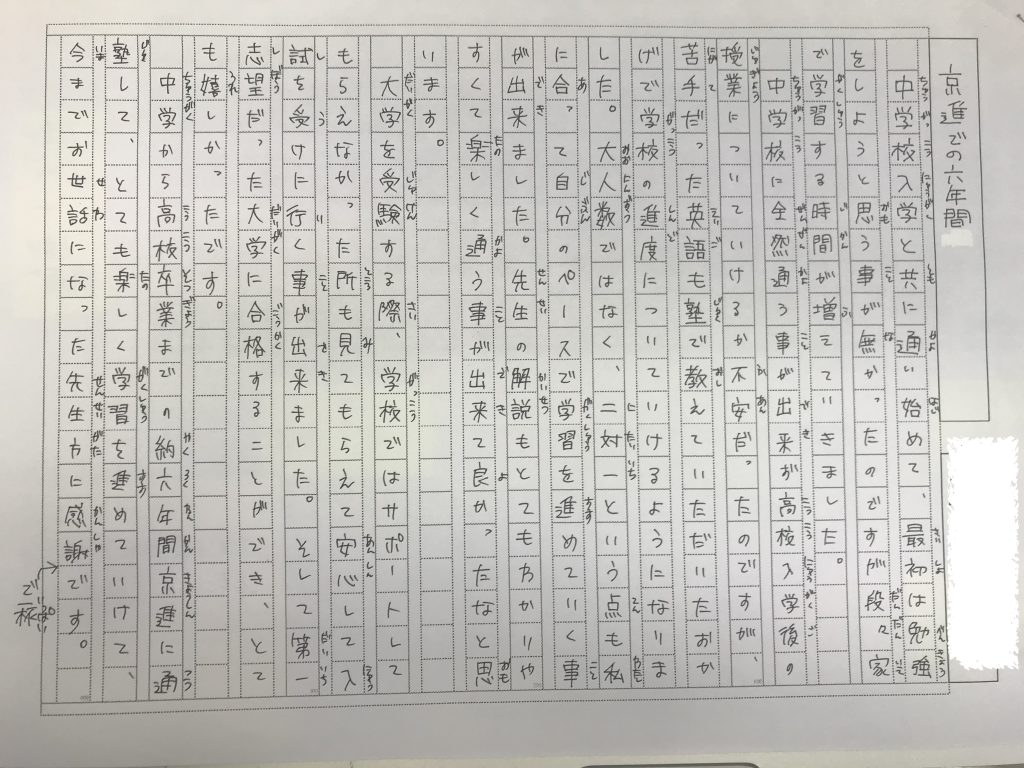 京進での六年間
中学校入学と共に通い始めて、最初は勉強
をしようと思う事が無かったのですが段々家
で学習する時間が増えていきました。
中学校に全然通う事が出来が高校入学後の
授業についていけるか不安だったのですが、
苦手だった英語も塾で教えていただいたおか
げで学校の進度についていけるようになりま
した。大人数ではなく、二対一という点も私
に合って自分のペースで学習を進めていく事
が出来ました。先生の解説もとてもわかりや
すくて楽しく通う事が出来て良かったなと思
います。
大学を受験する際、学校ではサポートして
もらえなかった所も見てもらえて安心して入
試を受けに行く事が出来ました。そして第一
志望だった大学に合格することができ、とて
も嬉しかったです。
中学から高校卒業までの納六年間京進に通
塾して、とても楽しく学習を進めていけて、
今までお世話になった先生方に感謝です。
で一杯